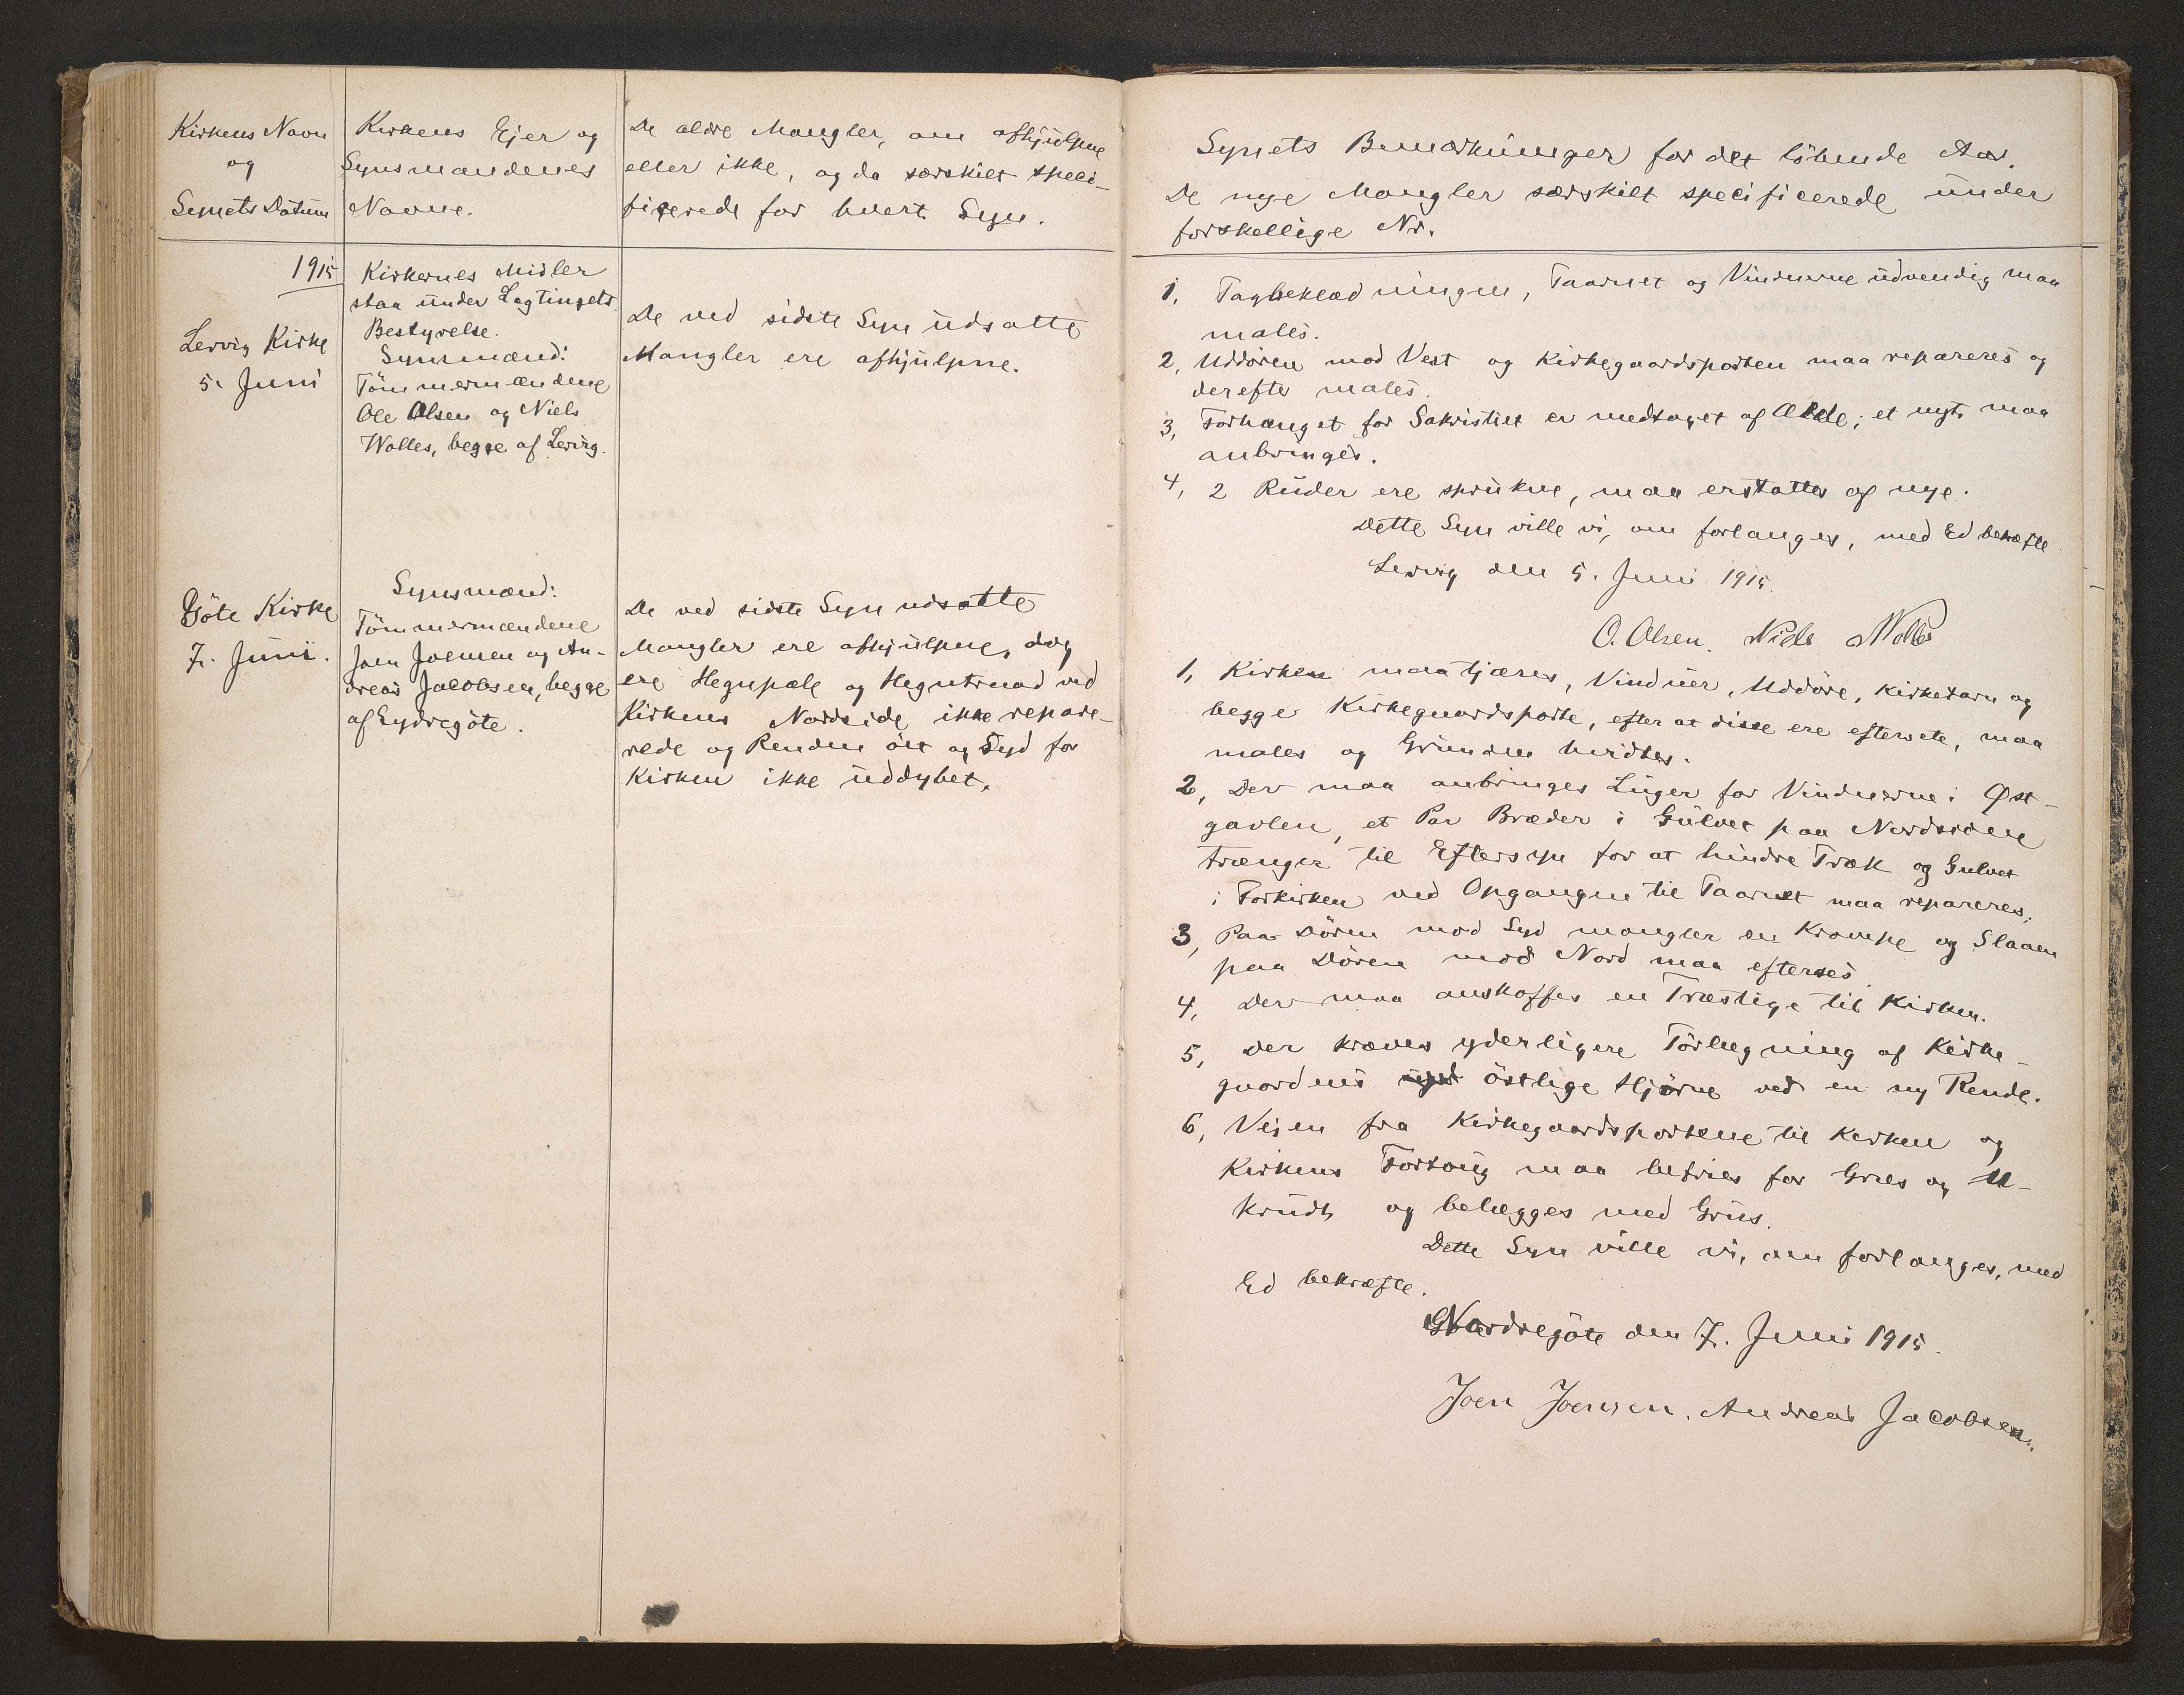 Kirkens Navn
og
Synets Datum
Kirkens Ejer og
Synsmændenes
Navne.
De ældre Mangler, om afhjulpne
eller ikke, og da særskilt speci-
ficerede for hvert Syn.
1915
Lervig Kirke
5. Juni
Kirkernes Midler
staa under Lagtingets
Bestyrelse.
Synsmænd:
Tömmermændene
Ole Olsen og Niels
Wolles, begge af Lervig.
De ved sidste Syn udsatte
Mangler ere afhjulpne.
Göte Kirke
7. Juni.
Synsmænd:
Tömmermændene
Joen Joensen og An-
dreas Jacobsen, begge
af Eydregöte.
De ved sidste Syn udsatte
Mangler ere afhjulpne, dog
ere Hegnpæle og Hegntraad ved
Kirkens Nordside ikke repare-
rede og Renden öst og Syd for
Kirken ikke uddybet.
Synets Bemærkninger for det löbende Aar.
De nye Mangler særskilt specificerede under
forskellige Nr.
1, Tagbeklædningen, Taarnet og Vinduerne udvendig maa
males.
2, Uddören mod Vest og Kirkegaardsporten maa repareres og
derefter males.
3, Forhænget for Sakristiet er medtaget af Ælde; et nyt maa
anbringes.
4, 2 Ruder ere sprukne, maa erstattes af nye.
Dette Syn ville vi, om forlanges, med Ed bekræfte
Lervig den 5. Juni 1915
O. Olsen. Niels Wolles
1, Kirken maa tjæres, Vinduer, Uddöre, Kirketarn og
begge Kirkegaardsporte, efter at disse ere eftersete, maa
males og Grunden hvidtes.
2, Der maa anbringes Luger for Vinduerne i Øst-
gavlen, et Par Bræder i Gulvet paa Nordsiden
trænger til Eftersyn for at hindre Træk og Gulvet
i Forkirken ved Opgangen til Taarnet maa repareres.
3, Paa Dören mod Syd mangler en Krampe og Slaaen
paa Dören mod Nord maa efterses.
4, Der maa anskaffes en Træstige til Kirken.
5, Der kræves yderligere Törlægning af Kirke-
gaardens östlige Hjörne ved en ny Rende.
6, Vejen fra Kirkegaardsportene til Kirken og
Kirkens Fortoug maa befries for Græs og U-
krudt og belægges med Grus.
Dette Syn ville vi, om forlanges, med
Ed bekræfte.
Nordregöte den 7. Juni 1915.
Joen Joensen. Andreas Jacobsen.